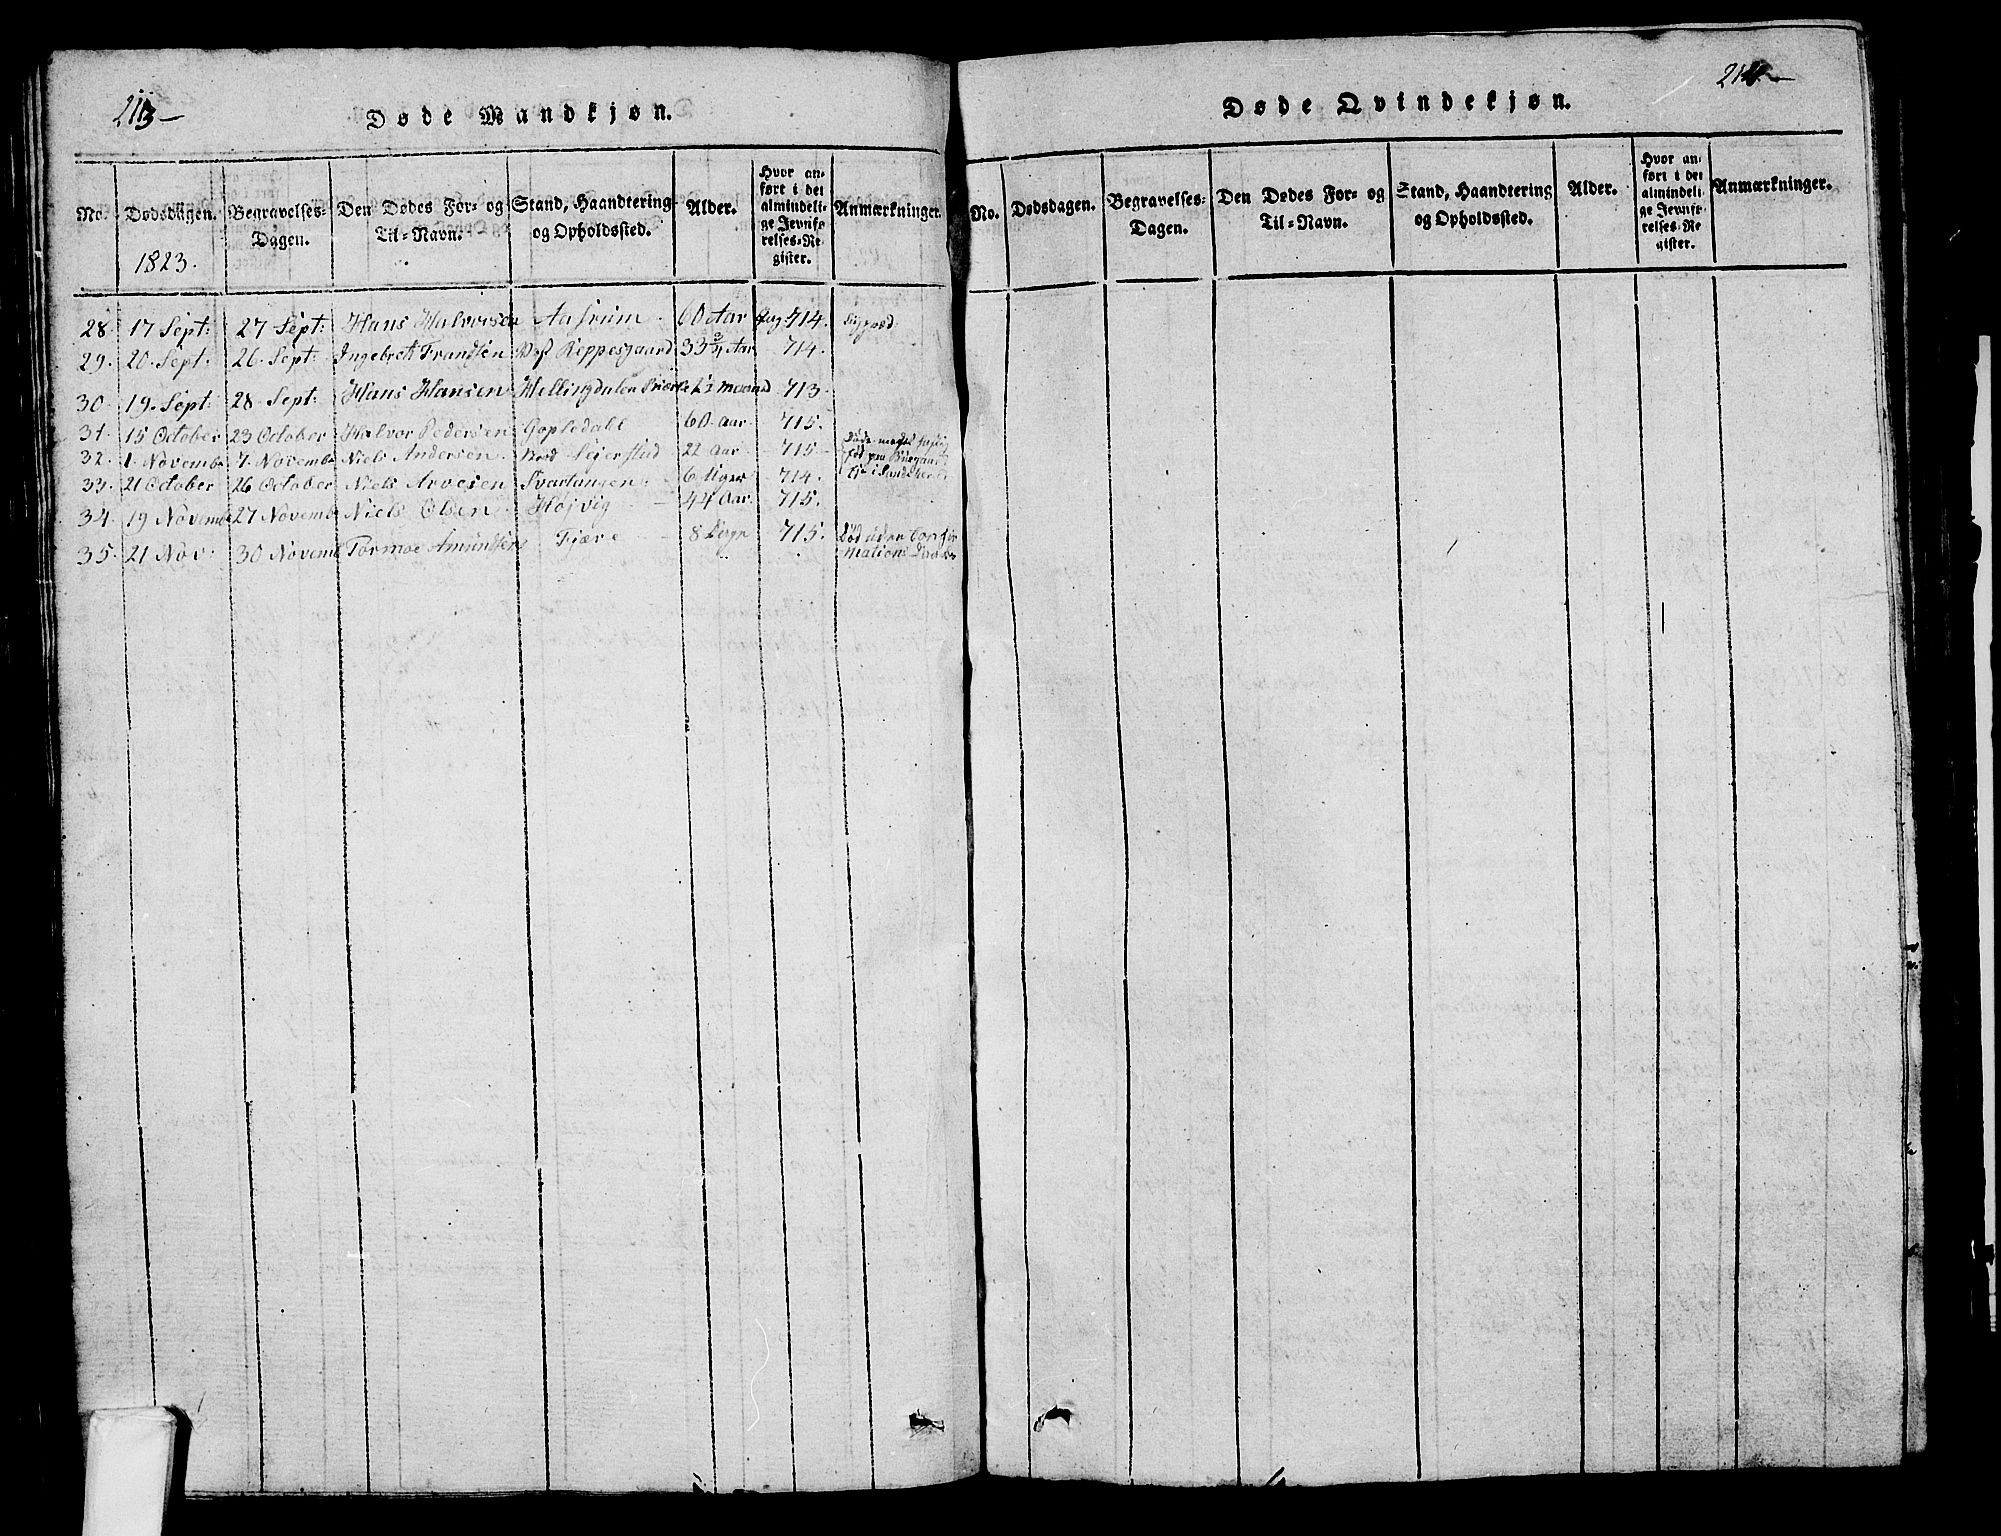 213
Døde Mandkjøn.
No. Dødsdagen. 1823. Begravelses-Dagen. Den Dødes For- og Til-Navn. Stand, Haandtering og Opholdssted. Alder. Hvor anført i det almindelige Jevnførelses-Register. Anmærkninger.
28. 17 Sept: 27 Sept: Hans Halvorsen 60 Aar 714.
29. 20. Sept. 26. Sept. Ingebret Frandsen Reppesgaard 33 3/4 Aar 714.
30. 19. Sept: 28 Sept: Hans Hansen Hellingdalen 713.
31. 15 October 23 October Halvor Pedersen Gopledall 60. Aar. 715.
32. 1. Novemb 7. Novemb Niels Andersen Seierstad 22 Aar 715
33. 21 October 26 October Niels Arvesen Svartangen 6 Uger 714.
34. 19 Novemb 27 Novemb Niels Olsen Højvig 44 Aar. 715.
35. 21 Nov 30 Novemb Tormoe Amundsen Fjære 8 Dage 715. Død uden Confirmations Daab
214
Døde Qvindekjøn.
No. Dødsdagen. Begravelses-Dagen. Den Dødes For- og Til-Navn. Stand, Haandtering og Opholdssted. Alder. Hvor anført i det almindelige Jevnførelses-Register. Anmærkninger.